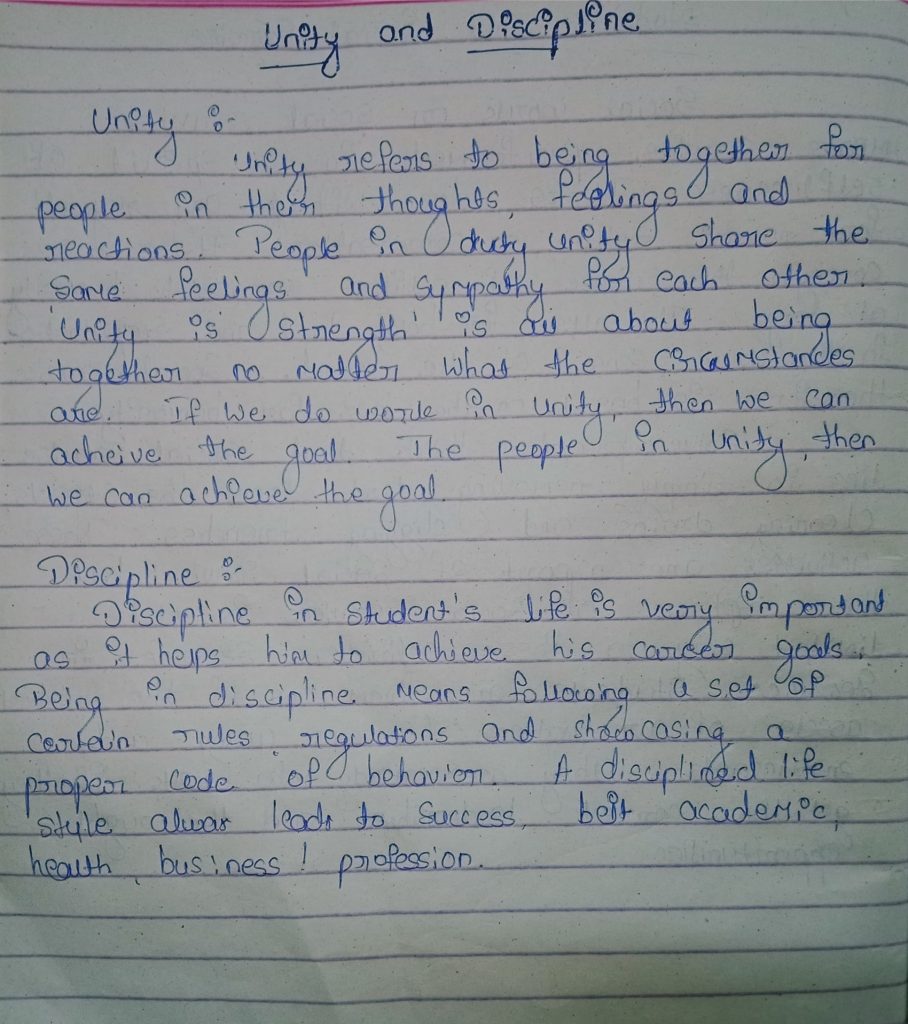 Unity and Discipline
Unity :-
Unity refers to being together for
people in their thoughts, feelings and
reactions. People in duty unity share the
same feelings and sympathy for each other.
'Unity is strength' is all about being
together no matter what the circumstances
are. If we do work in unity, then we can
acheive the goal. The people in unity, then
we can achieve the goal.
Discipline :-
Discipline in student's life is very important
as it helps him to achieve his career goals.
Being in discipline means following a set of
certain rules, regulations and showcasing a
proper code of behavior. A disciplined life
style always leads to success, be it academic,
health, business / profession.